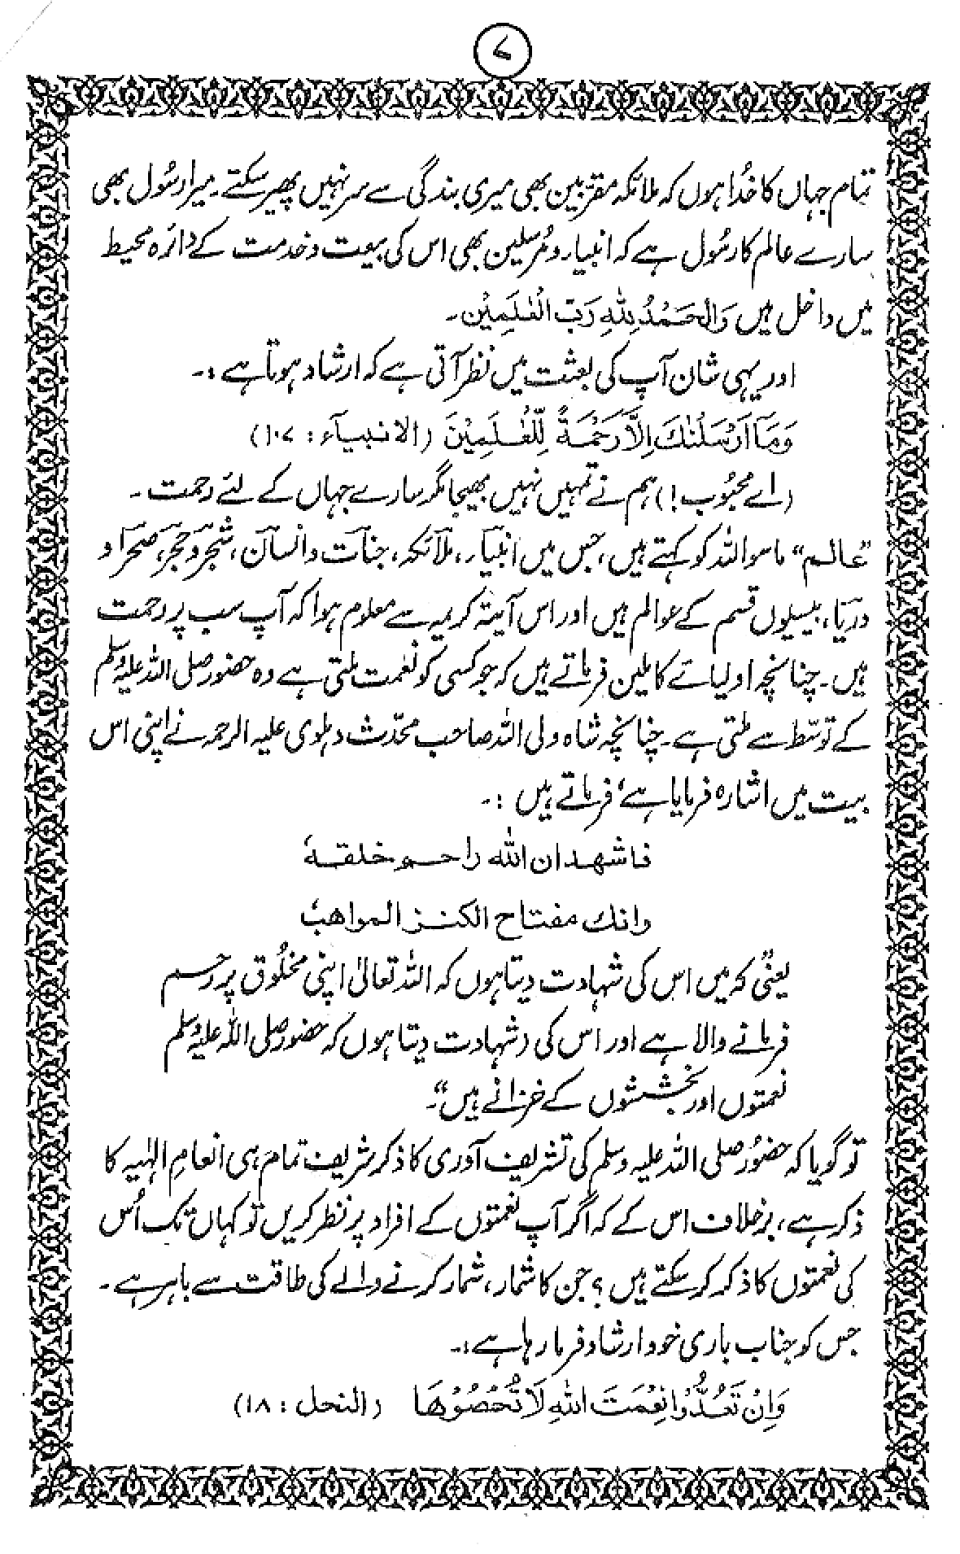 ۷
تمام جہاں کا خُدا ہوں کہ ملائکہ مقربین بھی میری بندگی سے سر نہیں پھیر سکتے۔ میرا رسُول بھی
سارے عالم کا رسُول ہے کہ انبیاء و مُرسلین بھی اس کی بیعت و خدمت کے دائرہ محیط
میں داخل ہیں وَالْحَمْدُ لِلّٰهِ رَبِّ الْعٰلَمِيْن۔
اور یہی شان آپ کی بعثت میں نظر آتی ہے کہ ارشاد ہوتا ہے :۔
وَمَآ اَرْسَلْنٰكَ اِلَّا رَحْمَةً لِّلْعٰلَمِيْنَ (الانبیآء : ۱۰۷)
(اے محبُوب!) ہم نے تمہیں نہیں بھیجا مگر سارے جہاں کے لئے رحمت ۔
”عالم“ ماسوا اللہ کو کہتے ہیں، جس میں انبیاء، ملائکہ، جنات و انسان، شجر و حجر، صحرا و
دریا، بیسیوں قسم کے عوالم ہیں اور اس آیۃ کریمہ سے معلوم ہوا کہ آپ سب پر رحمت
ہیں۔ چنانچہ اولیائے کاملین فرماتے ہیں کہ جو کسی کو نعمت ملتی ہے وہ حضور صلی اللہ علیہ وسلم
کے توسّط سے ملتی ہے۔ چنانچہ شاہ ولی اللہ صاحب محدّث دہلوی علیہ الرحمہ نے اپنی اس
بیت میں اشارہ فرمایا ہے، فرماتے ہیں :۔
فاشهد ان الله راحم خلقهٗ
وانك مفتاح الكنز المواهبٗ
یعنی” کہ میں اس کی شہادت دیتا ہوں کہ اللہ تعالیٰ اپنی مخلُوق پر رحم
فرمانے والا ہے اور اس کی (شہادت دیتا ہوں کہ حضور صلی اللہ علیہ وسلم
نعمتوں اور بخششوں کے خزانے ہیں“۔
تو گویا کہ حضُور صلی اللہ علیہ وسلم کی تشریف آوری کا ذکر شریف تمام ہی انعامِ الٰہیہ کا
ذکر ہے، برخلاف اس کے کہ اگر آپ نعمتوں کے افراد پر نظر کریں تو کہاں تک اُس
کی نعمتوں کا ذکر کر سکتے ہیں؟ جن کا شمار، شمار کرنے والے کی طاقت سے باہر ہے ۔
جس کو جناب باری خود ارشاد فرما رہا ہے :۔
وَاِنْ تَعُدُّوْا نِعْمَتَ اللّٰهِ لَا تُحْصُوْهَا (النحل : ۱۸)